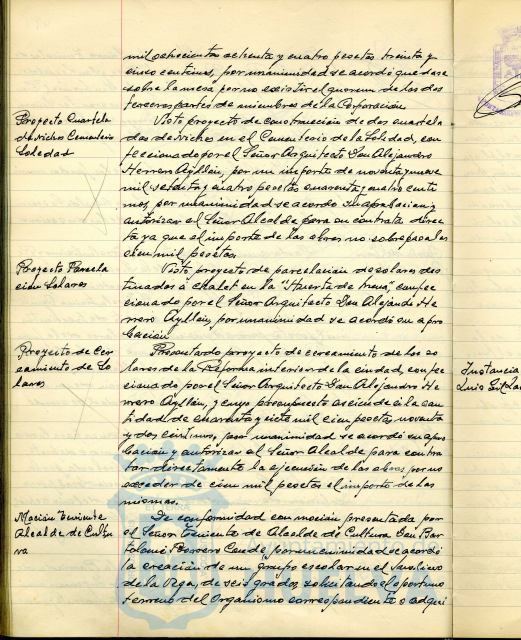 mil ochocientas ochenta y cuatro pesetas treinta y
cinco centimos, por unanimidad se acordó quedase
sobre la mesa por no existir el quorum de las dos
terceras partes de miembros de la Corporación.
Proyecto Cuartela
da Nichos Cementerio
Soledad
Visto proyecto de construcción de dos cuartela
das de Nichos en el Cementerio de la Soledad, con
feccionado por el Señor Arquitecto Don Alejandro
Herrero Ayllón, por un importe de noventa y nueve
mil setenta y cuatro pesetas cuarenta y cuatro centi
mos, por unanimidad se acordó su aprobacion y
autorizar al Señor Alcalde para su contrata direc
ta ya que el importe de las obras no sobrepasa las
cien mil pesetas.
Proyecto Parcela
cion Solares
Visto, proyecto de parcelacion de solares des
tinados a chalet en la "Huerta de Mena", confec
cionado por el Señor Arquitecto Don Alejandro He
rrero Ayllón, por unanimidad se acordó su apro
bación
Proyecto de Cer
camiento de So
lares
Presentado proyecto de cercamiento de los so
lares de la Reforma interior de la ciudad, confec
cionado por el Señor Arquitecto Don Alejandro He
rrero Ayllón, y cuyo presupuesto asciende a la can
tidad de cuarenta y siete mil cien pesetas noventa
y dos centimos, por unanimidad se acordó su apro
bacion y autorizar al Señor Alcalde para contra
tar directamente la ejecución de las obras por no
exceder de cien mil pesetas el importe de las
mismas.
Moción Teniente
Alcalde de Cultu
ra
De conformidad con moción presentada por
el Señor Teniente de Alcalde de Cultura Don Bar
tolomé Forero Conde, por unanimidad se acordó
la creación de un grupo escolar en el
de la Vega, de seis grados, solicitando el oportuno
terreno del Organismo correspondiente o adqui
Instancia
Luis